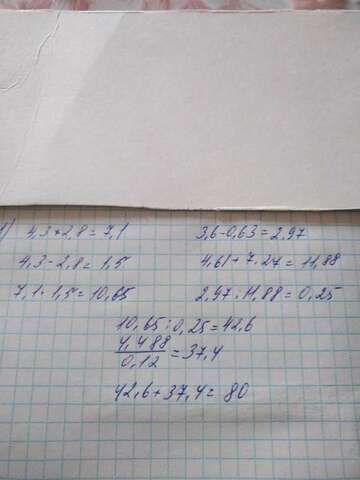 1) 4,3+2,8=7,1 3,6-0,63=2,97
4,3-2,8=1,5 4,61+7.27=11,88
7,1·1,5=10,65 2,97:11,88=0,25
10,65:0,25=42,6
4,488/0,12=37,4
42,6+37,4=80